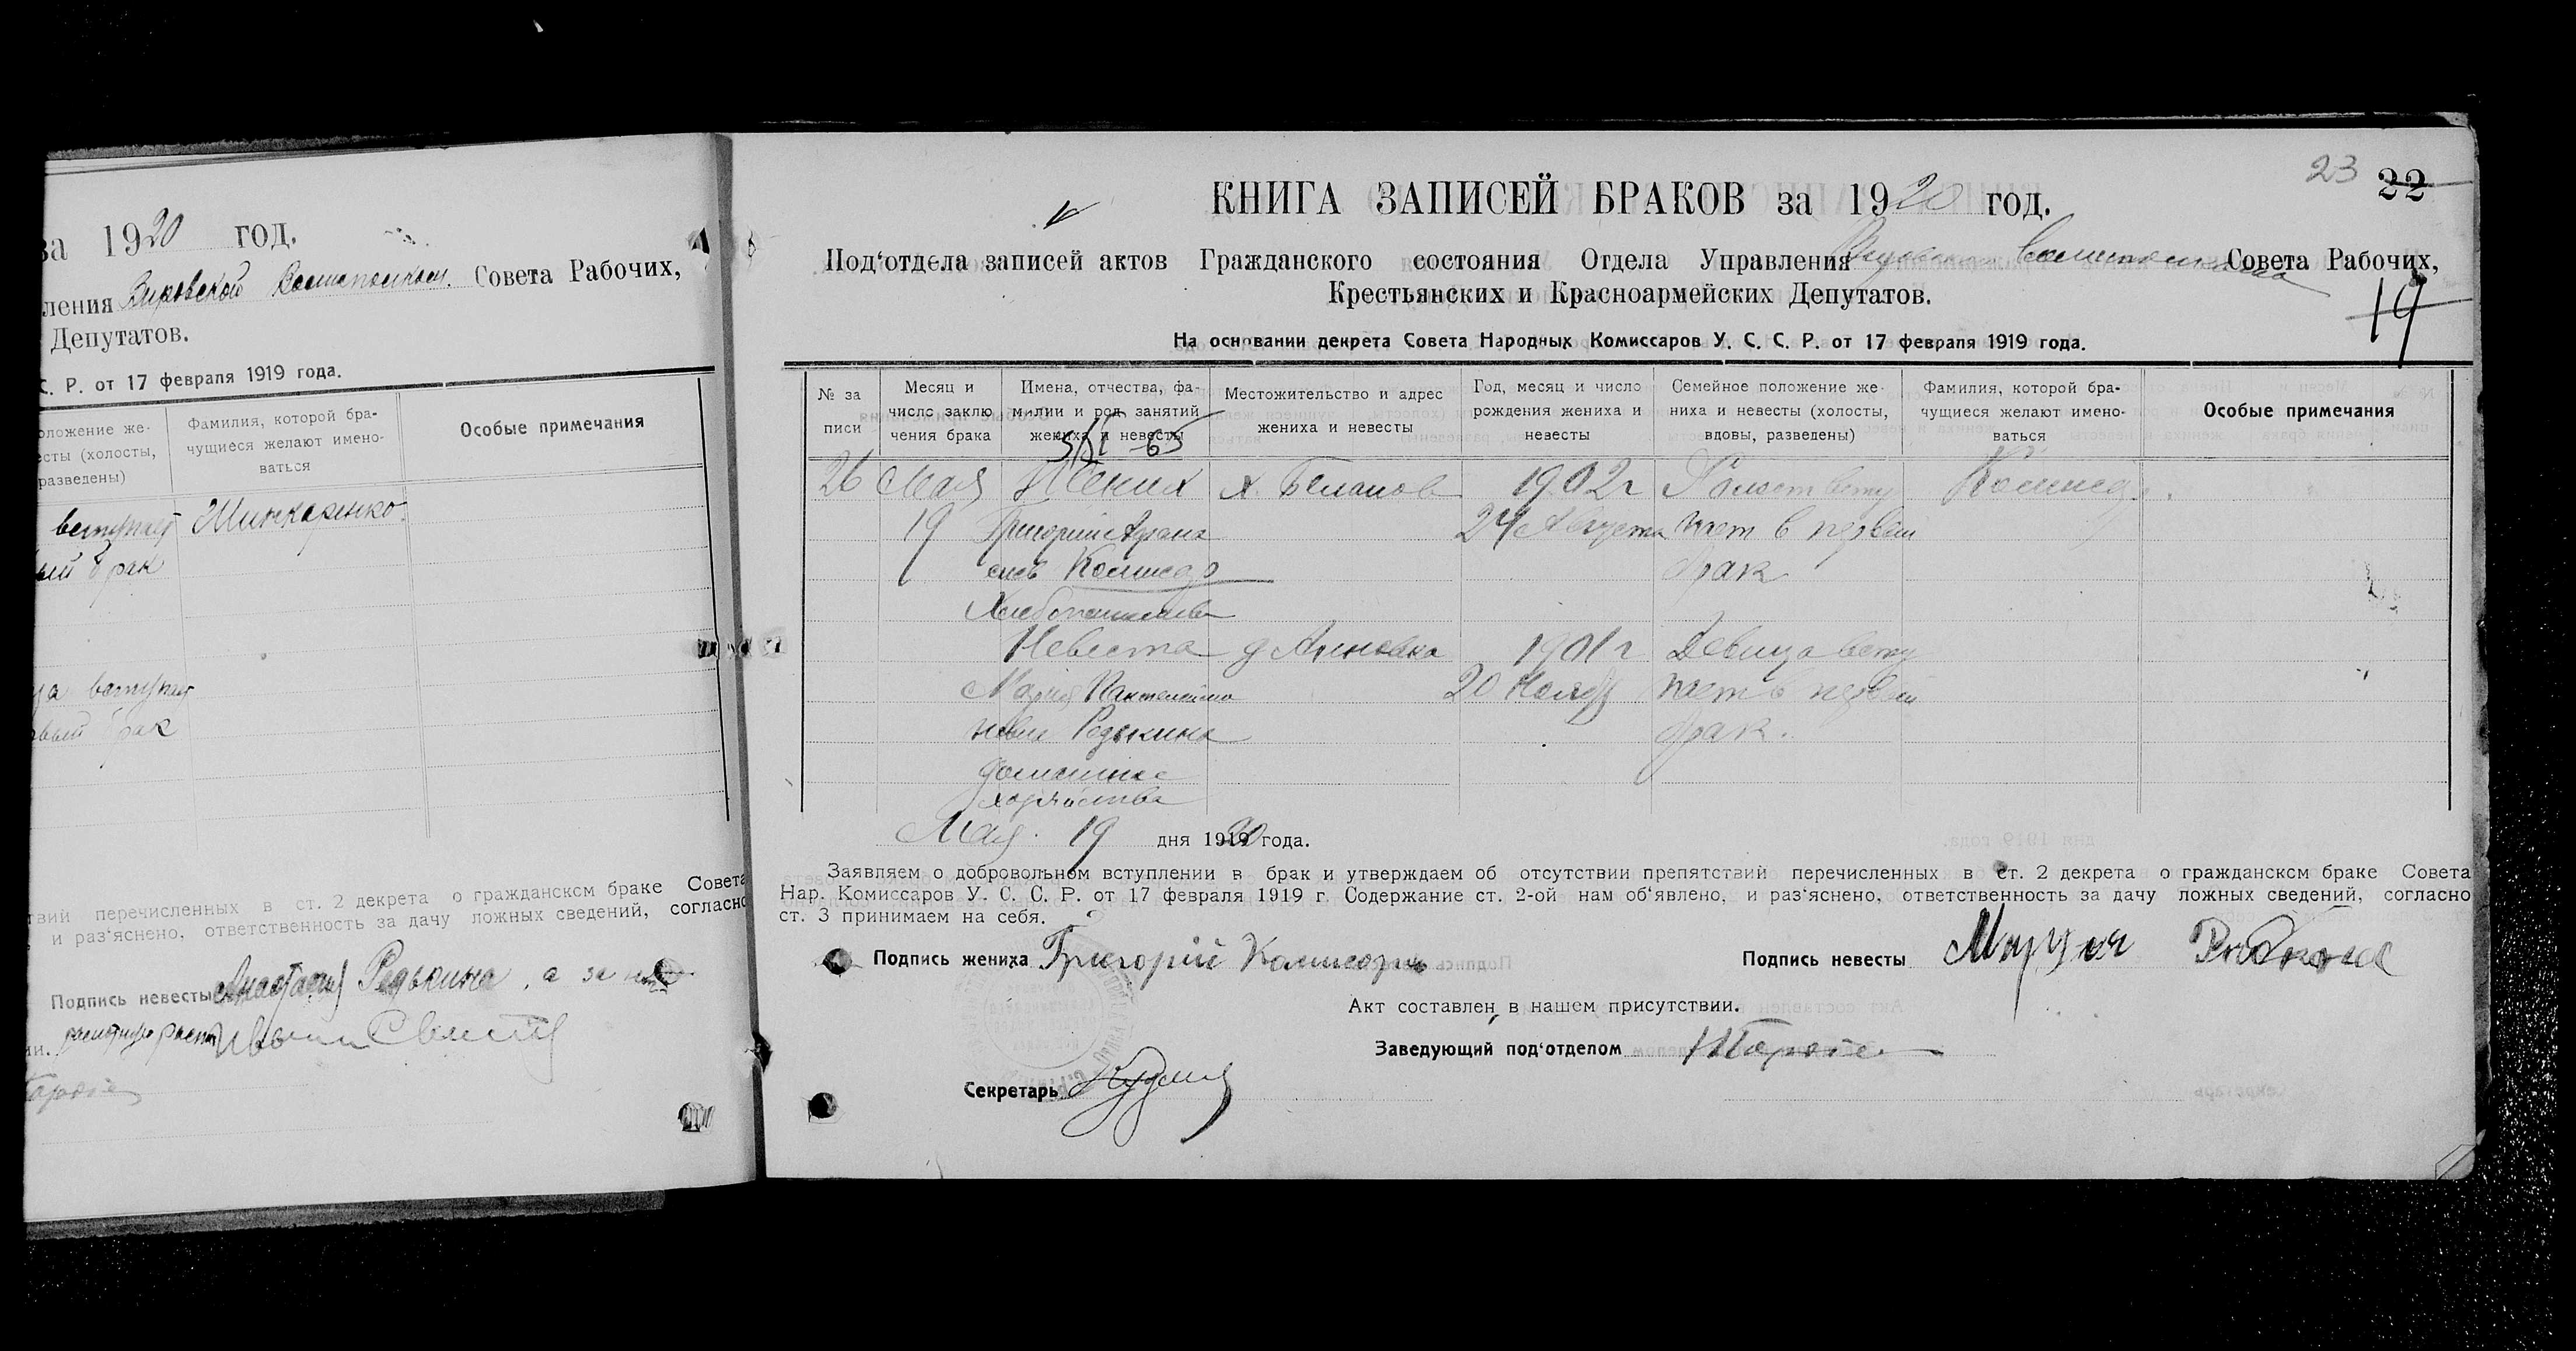 за 1920 год.
ления Вировской Совета Рабочих,
Депутатов.
С. Р. от 17 февраля 1919 года.
оложение же-
есты (холосты,
разведены)
Фамилия, которой бра-
чущиеся желают имено-
ваться
Особые примечания
вступает Шинкаренко
ый брак
ца вступает
рвый брак
твий перечисленных в ст. 2 декрета о гражданском браке Совета
и раз‘яснено, ответственность за дачу ложных сведений, согласно
Подпись невесты Анастасия Редькина, а за
Иван
23 22
КНИГА ЗАПИСЕЙ БРАКОВ за 1920 год.
Под‘отдела записей актов Гражданского состояния Отдела Управления Совета Рабочих,
Крестьянских и Красноармейских Депутатов.
19
На основании декрета Совета Народных Комиссаров У. С. С. Р. от 17 февраля 1919 года.
№ за
писи
Месяц и
число заклю
чения брака
Имена, отчества, фа-
милии и род занятий
жениха и невесты
Местожительство и адрес
жениха и невесты
Год, месяц и число
рождения жениха и
невесты
Семейное положение же-
ниха и невесты (холосты,
вдовы, разведены)
Фамилия, которой бра-
чущиеся желают имено-
ваться
Особые примечания
26 Мая Жених х. 1902 г Холост всту
19 Григорий Афана 24 Августа пает в первый
сиев брак
Хлебопашество
Невеста д 1901 г Девица всту
Мария Пантелеймо 20 Ноября пает в первый
новна Редькина брак.
домашнее
хозяйство
Мая 19 дня 1920 года.
Заявляем о добровольном вступлении в брак и утверждаем об отсутствии препятствий перечисленных в ст. 2 декрета о гражданском браке Совета
Нар. Комиссаров У. С. С. Р. от 17 февраля 1919 г. Содержание ст. 2-ой нам об‘явлено, и раз‘яснено, ответственность за дачу ложных сведений, согласно
ст. 3 принимаем на себя.
Подпись жениха Григорій Подпись невесты Мария
Акт составлен в нашем присутствии.
Заведующий под‘отделом
Секретарь